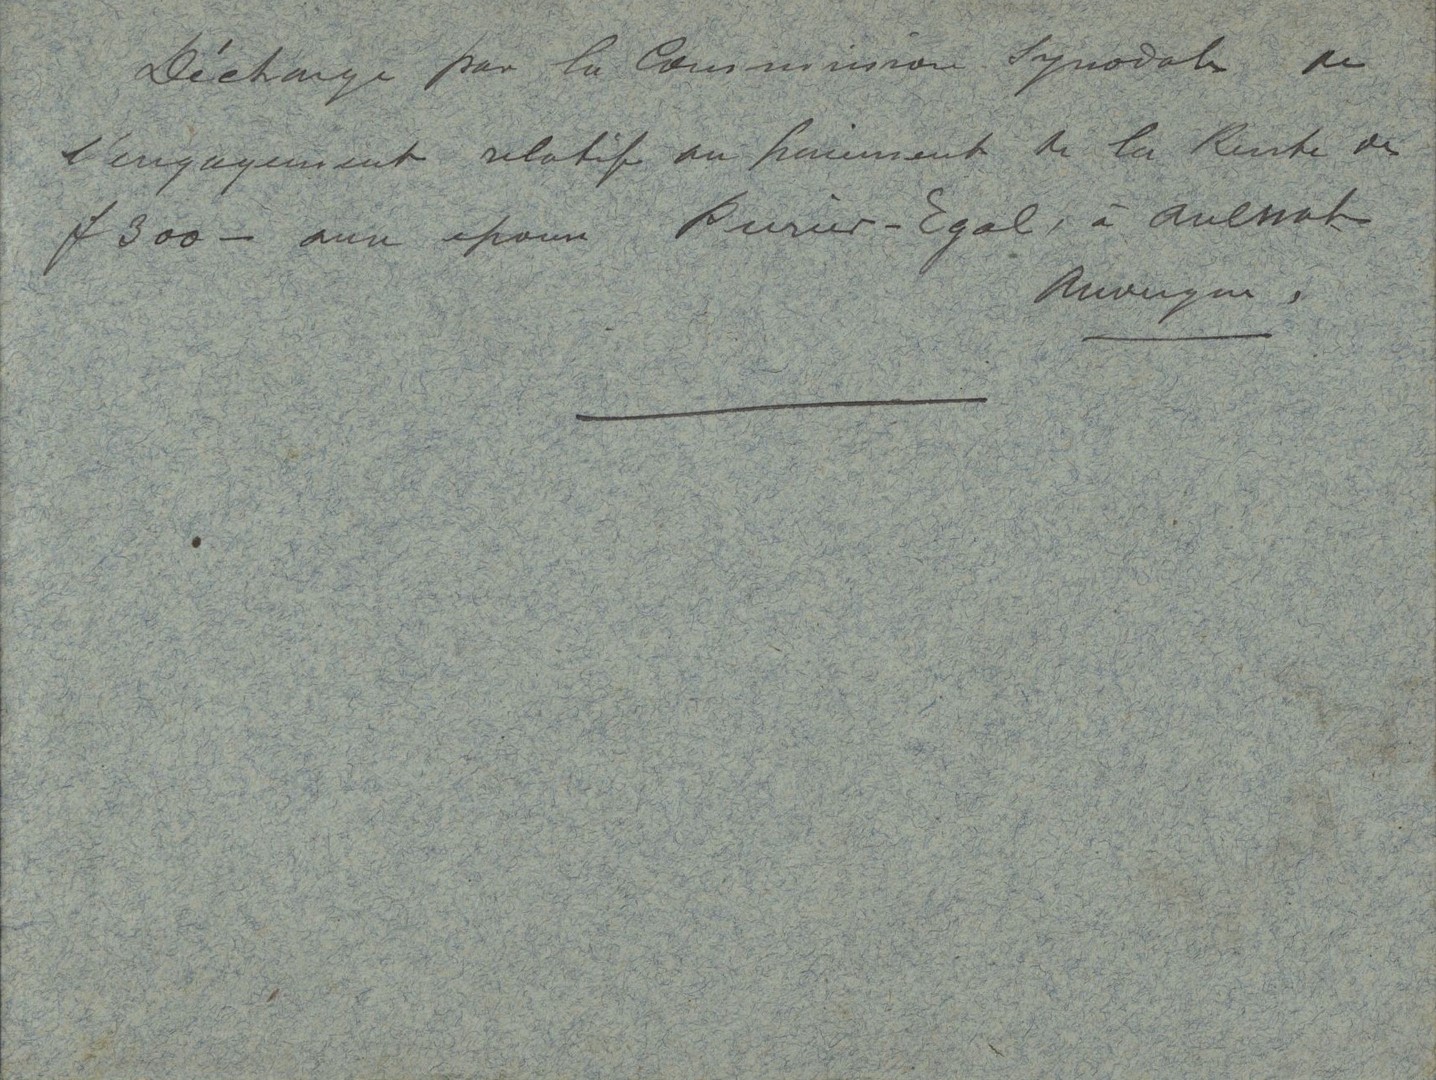 Décharge par la Commission Synodale de
l'engagement relatif au paiement de la Rente de
f 300 — aux époux -Egal, à Aulnat
Auvergne.